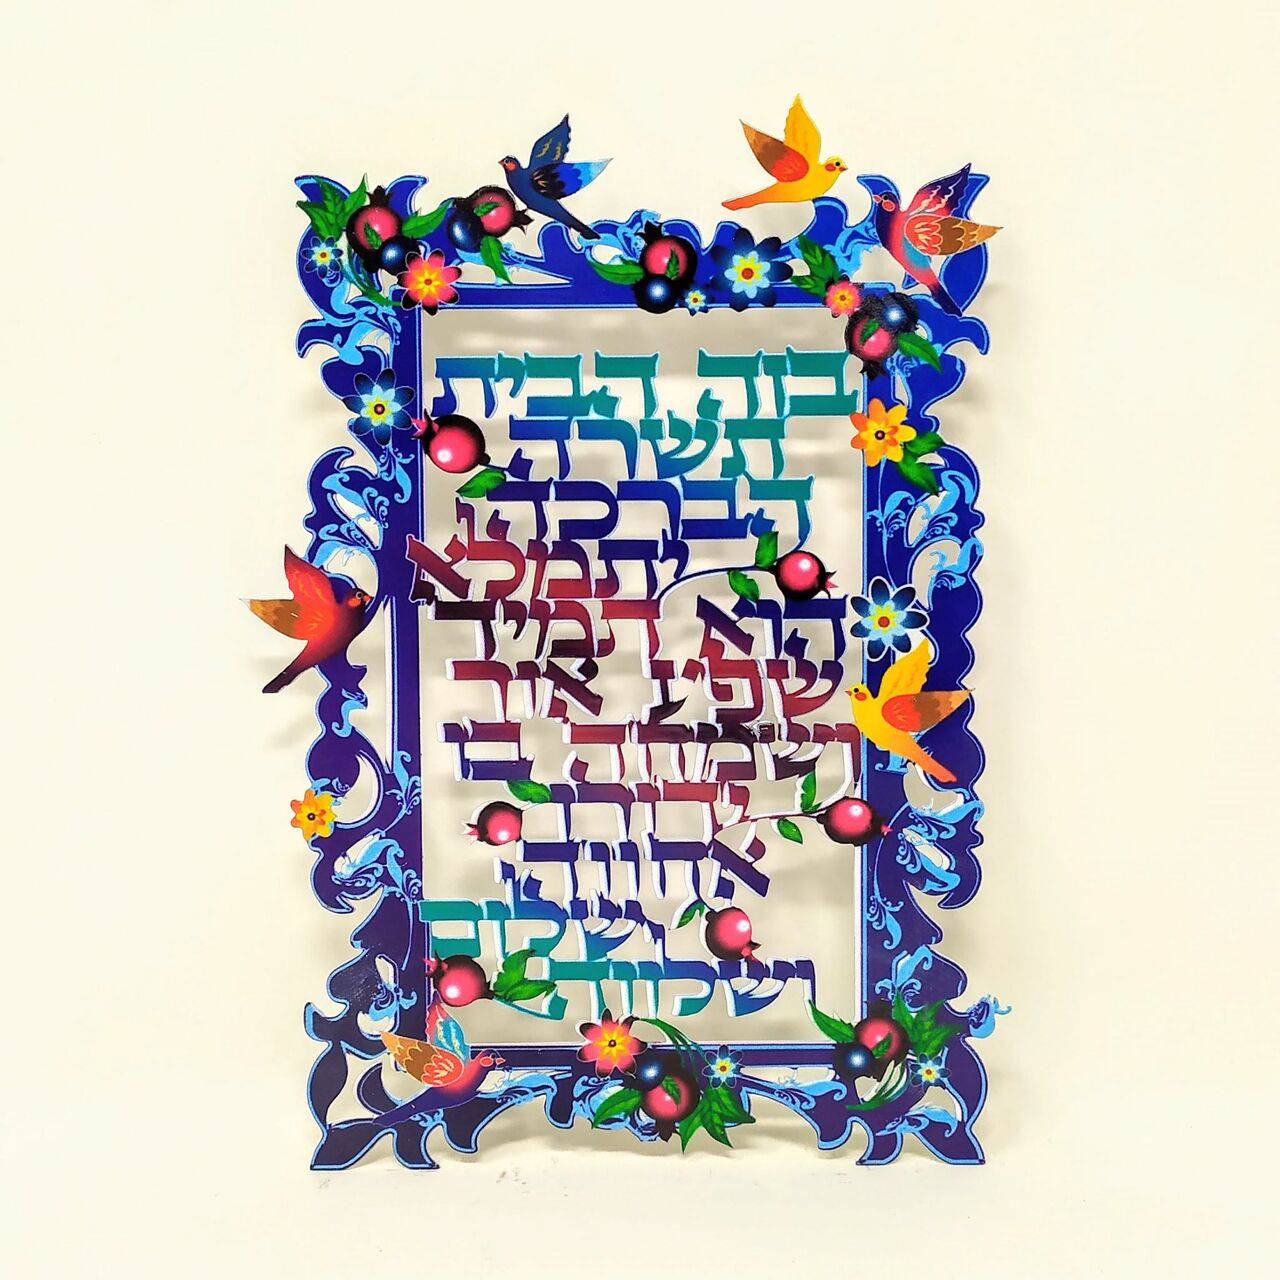 בזה הבית
תשרה
הברכה
יתמלא
הוא תמיד
שפע אור
ושמחה בו
ידורו
אחווה
ושלום
ושלווה